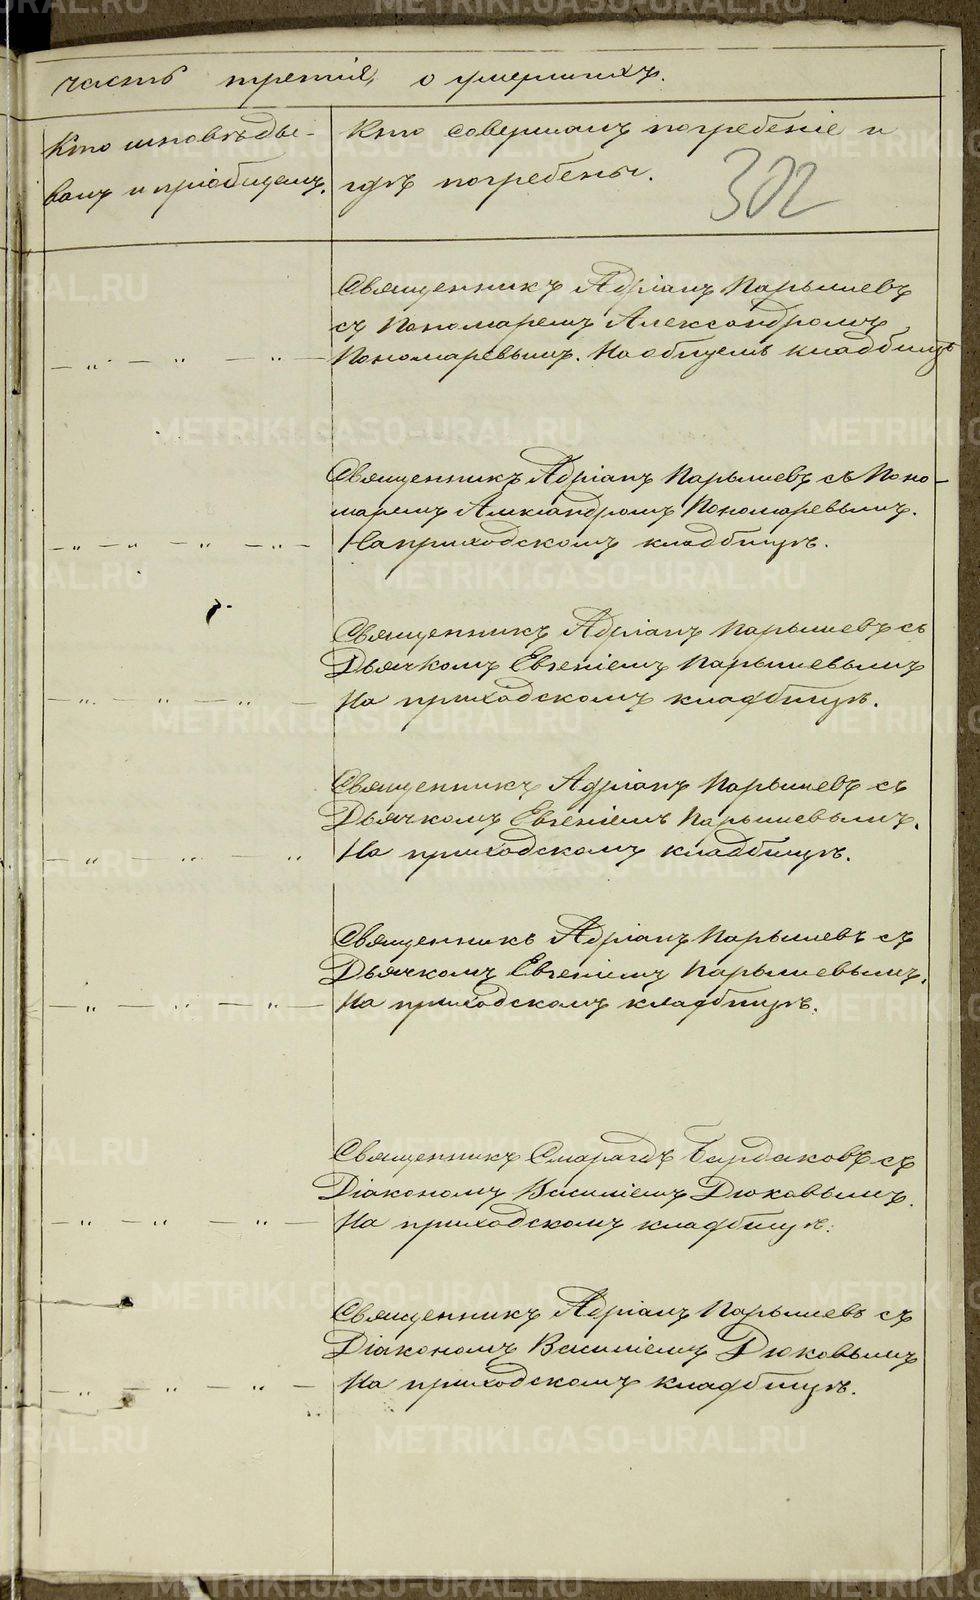 часть третія, о умершихъ.
Кто исповѣды-
валъ и пріобщалъ.
Кто совершалъ погребеніе и
гдѣ погребены.
302
Священникъ Адріанъ Парышевъ
съ Пономаремъ Александромъ
Пономаревымъ. На общемъ кладбищѣ
— „ — „ — „ —
Священникъ Адріанъ Парышевъ съ Поно-
маремъ Александромъ Пономаревымъ.
На приходскомъ кладбищѣ.
— „ — „ — „ — „ —
Священникъ Адріанъ Парышевъ съ
Дьячкомъ Евгеніемъ Парышевымъ
На приходскомъ кладбищѣ.
— „ — „ — „ —
Священникъ Адріанъ Парышевъ съ
Дьячкомъ Евгеніемъ Парышевымъ.
На приходскомъ кладбищѣ.
— „ — „ — „
Священникъ Адріанъ Парышевъ съ
Дьячкомъ Евгеніемъ Парышевымъ.
На приходскомъ кладбищѣ.
— „ — „ — „ —
Священникъ Смарагдъ Бардаковъ съ
Діакономъ Василіемъ Дюковымъ.
На приходскомъ кладбищѣ.
— „ — „ — „ —
Священникъ Адріанъ Парышевъ съ
Діакономъ Василіемъ Дюковымъ
На приходскомъ кладбищѣ.
— „ — „ — „ —
METRIKI.GASO-URAL.RU